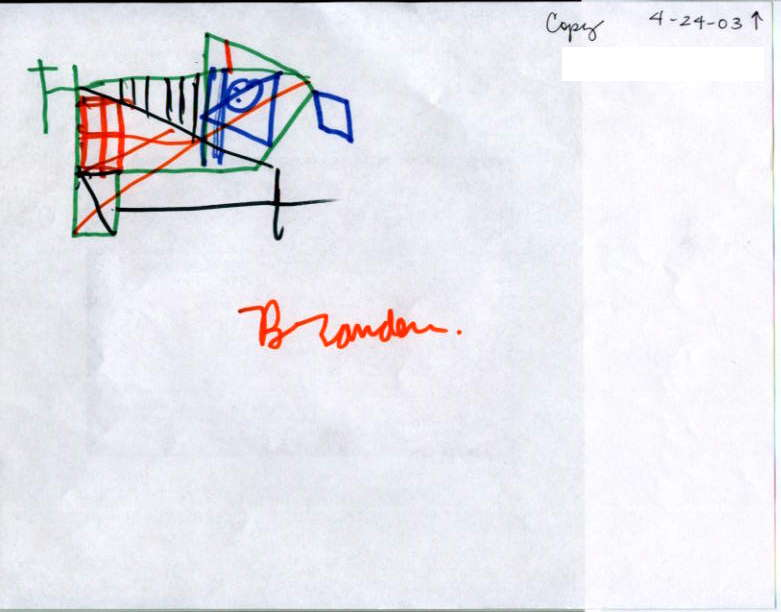 Copy 4-24-03↑
Branden.